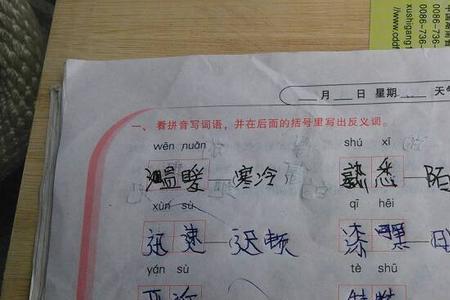 xushigang1
0086-736-
0086-736-
//www.cddf
月 日 星期 天气
一、看拼音写词语,并在后面的括号里写出反义词。
wēn nuǎn shú xī
温暖—寒冷 熟悉—陌
xùn sù qī hēi
迅速—迟顿 漆黑—
yán sù tè shū